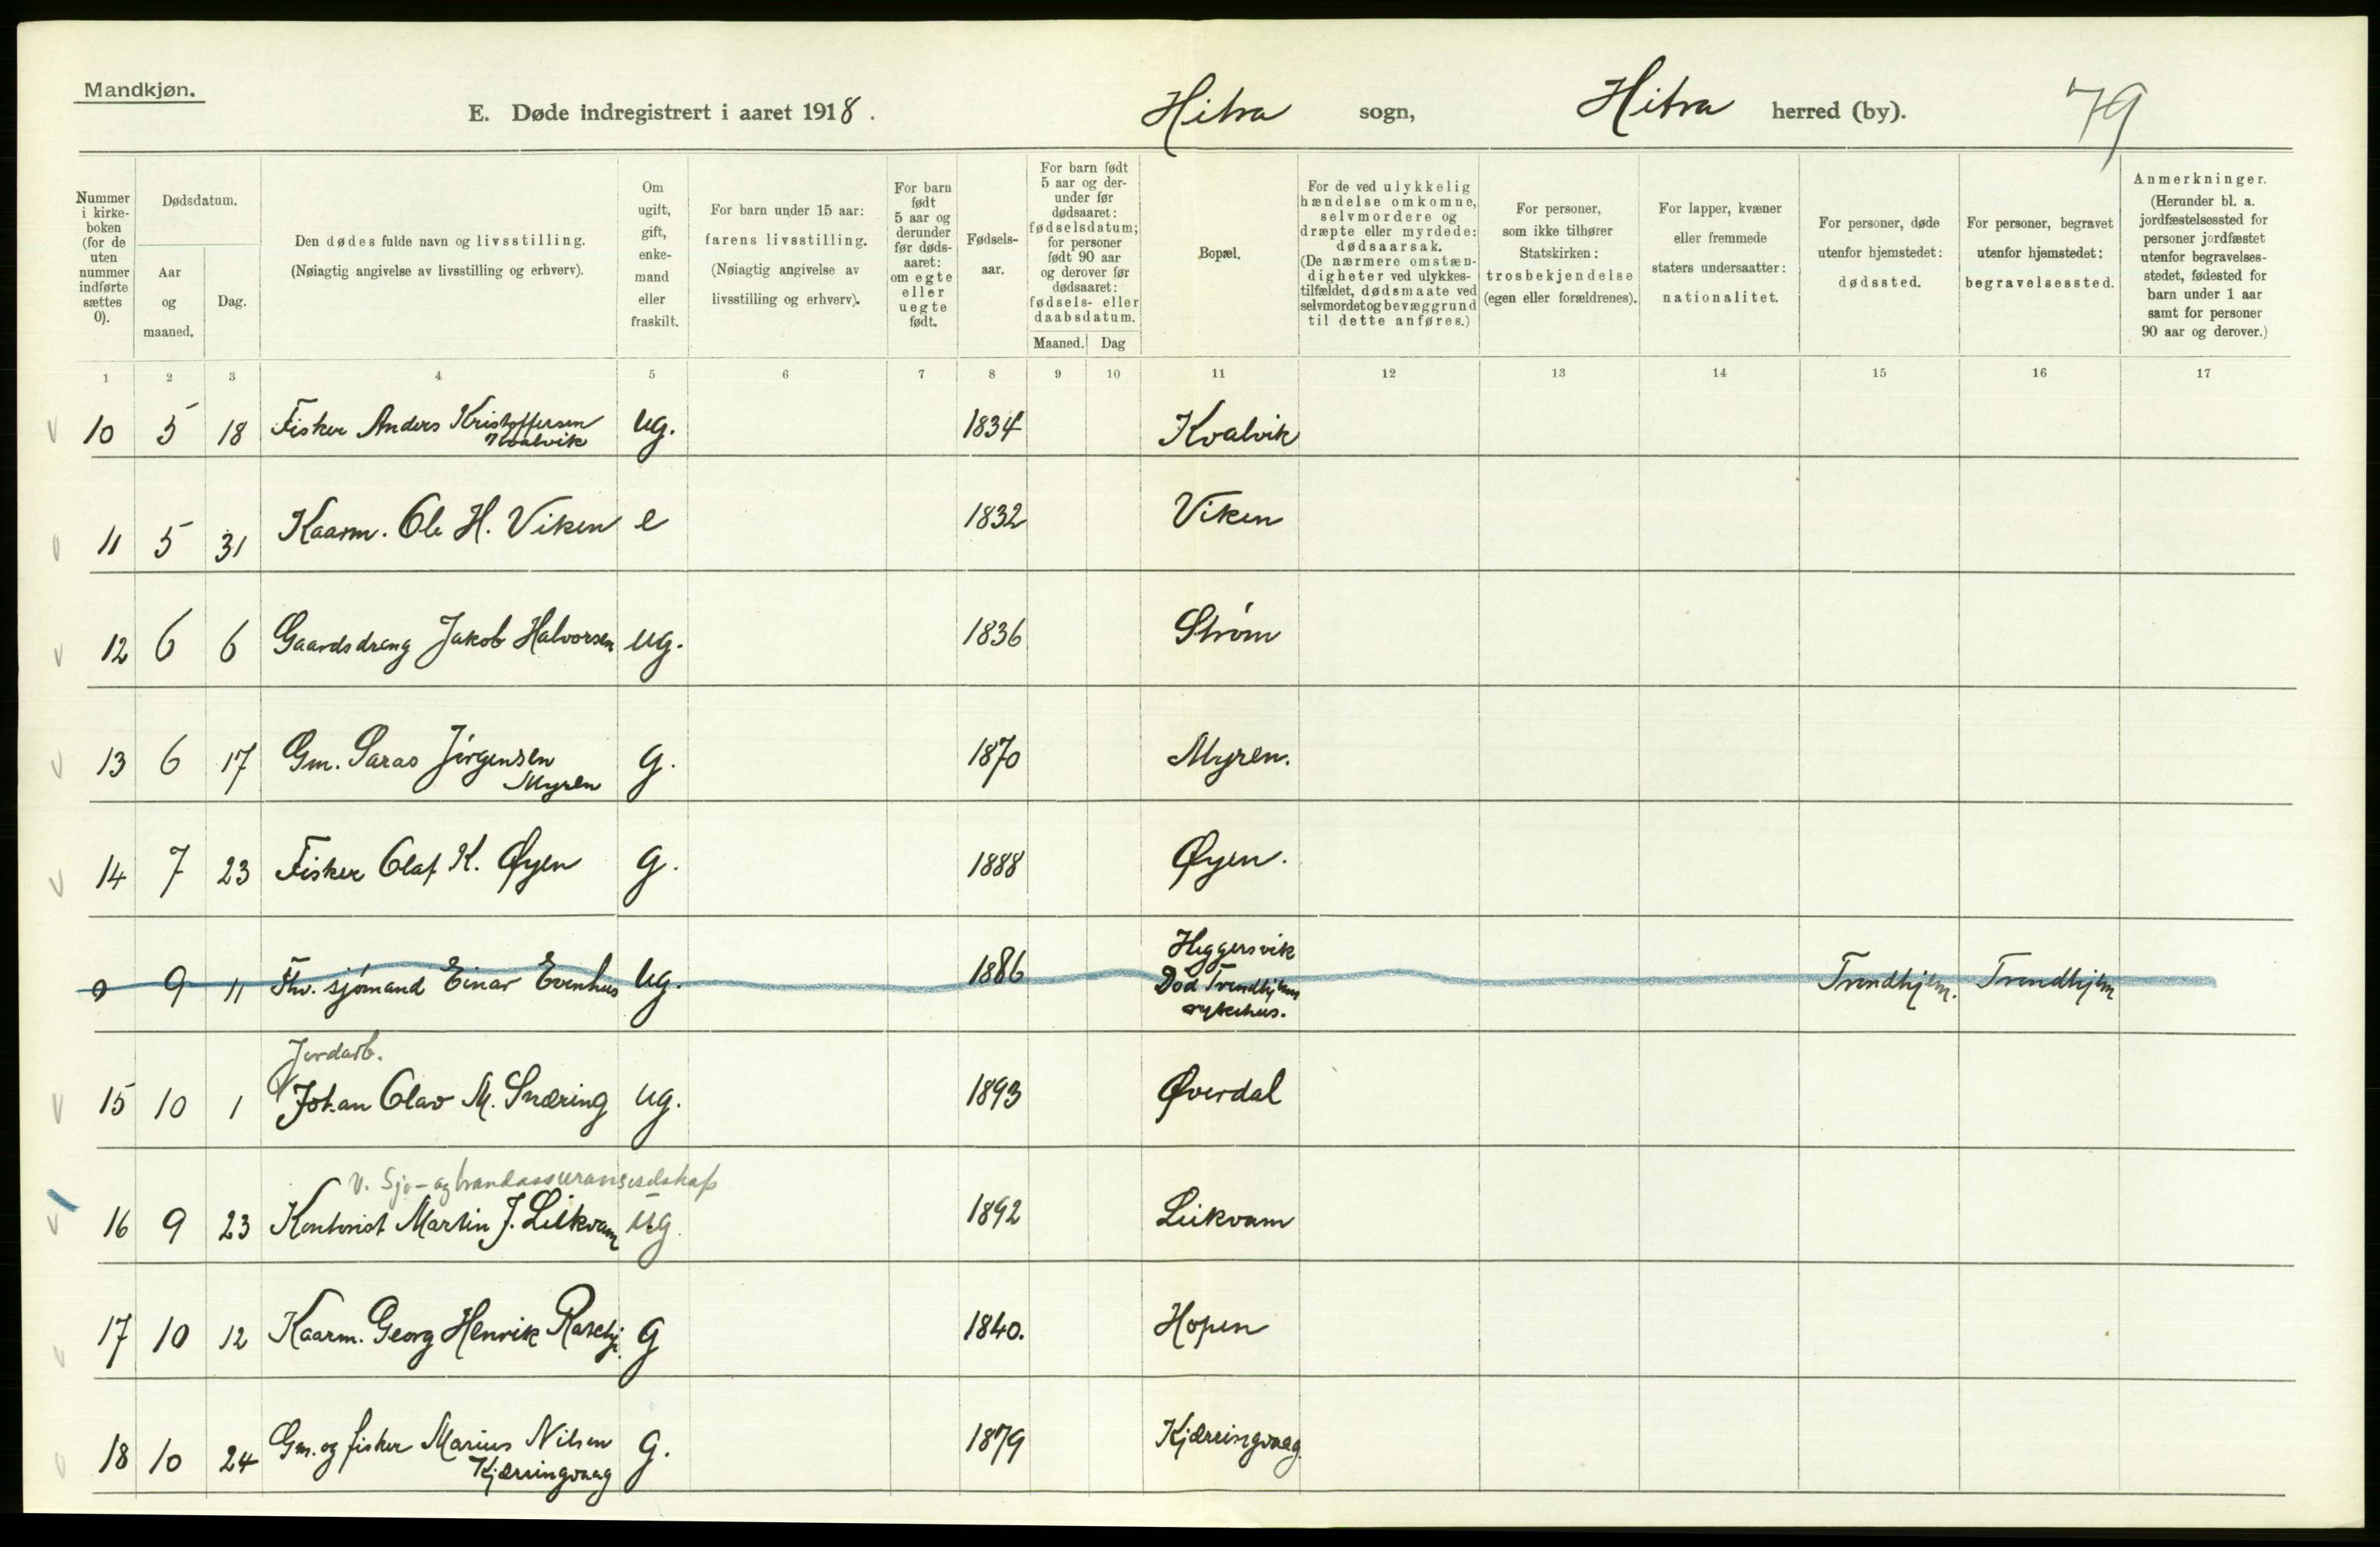 Mandkjøn.
E. Døde indregistrert i aaret 1918. Hitra sogn, Hitra herred (by). 79
Nummer i kirkeboken (for de uten nummer indførte sættes 0).
Dødsdatum.
Aar og maaned.
Dag.
Den dødes fulde navn og livsstilling.
(Nøiagtig angivelse av livsstilling og erhverv).
Om ugift, gift, enkemand eller fraskilt.
For barn under 15 aar: farens livsstilling.
(Nøiagtig angivelse av livsstilling og erhverv).
For barn født 5 aar og derunder før dødsaaret: om egte eller uegte født.
Fødselsaar.
For barn født 5 aar og derunder før dødsaaret: fødselsdatum; for personer født 90 aar og derover før dødsaaret: fødsels- eller daabsdatum.
Maaned. Dag
Bopæl.
For de ved ulykkelig hændelse omkomne, selvmordere og dræpte eller myrdede: dødsaarsak.
(De nærmere omstændigheter ved ulykkestilfældet, dødsmaate ved selvmordet og bevæggrund til dette anføres.)
For personer, som ikke tilhører Statskirken: trosbekjendelse (egen eller forældrenes).
For lapper, kvæner eller fremmede staters undersaatter: nationalitet.
For personer, døde utenfor hjemstedet: dødssted.
For personer, begravet utenfor hjemstedet: begravelsessted.
Anmerkninger.
(Herunder bl. a. jordfæstelsessted for personer jordfæstet utenfor begravelsesstedet, fødested for barn under 1 aar samt for personer 90 aar og derover.)
1 2 3 4 5 6 7 8 9 10 11 12 13 14 15 16 17
10 5 18 Fisker Anders Kristoffersen Kvalvik ug. 1834 Kvalvik
11 5 31 Kaarm. Ole H. Viken e 1832 Viken
12 6 6 Gaardsdreng Jakob Halvorsen ug. 1836 Strøm
13 6 17 Gm. Saras Jørgensen Myren g. 1870 Myren.
14 7 23 Fisker Olaf K. Øyen g. 1888 Øyen.
0 9 11 Fhv. sjømand Einar Evenhus ug. 1886 Heggersvik
Død Trondhjems sykehus. Trondhjem. Trondhjem
Jordarb.
15 10 1 Johan Olav M. Snæring ug. 1893 Øverdal
v. Sjø- og brandassuranseselskap
16 9 23 Kontorist Martin J. Leikvam ug. 1892 Leikvam
17 10 12 Kaarm. Georg Henrik g 1840. Hopen
18 10 24 Gm. og fisker Marius Nilsen Kjærringvaag g. 1879 Kjærringvaag.